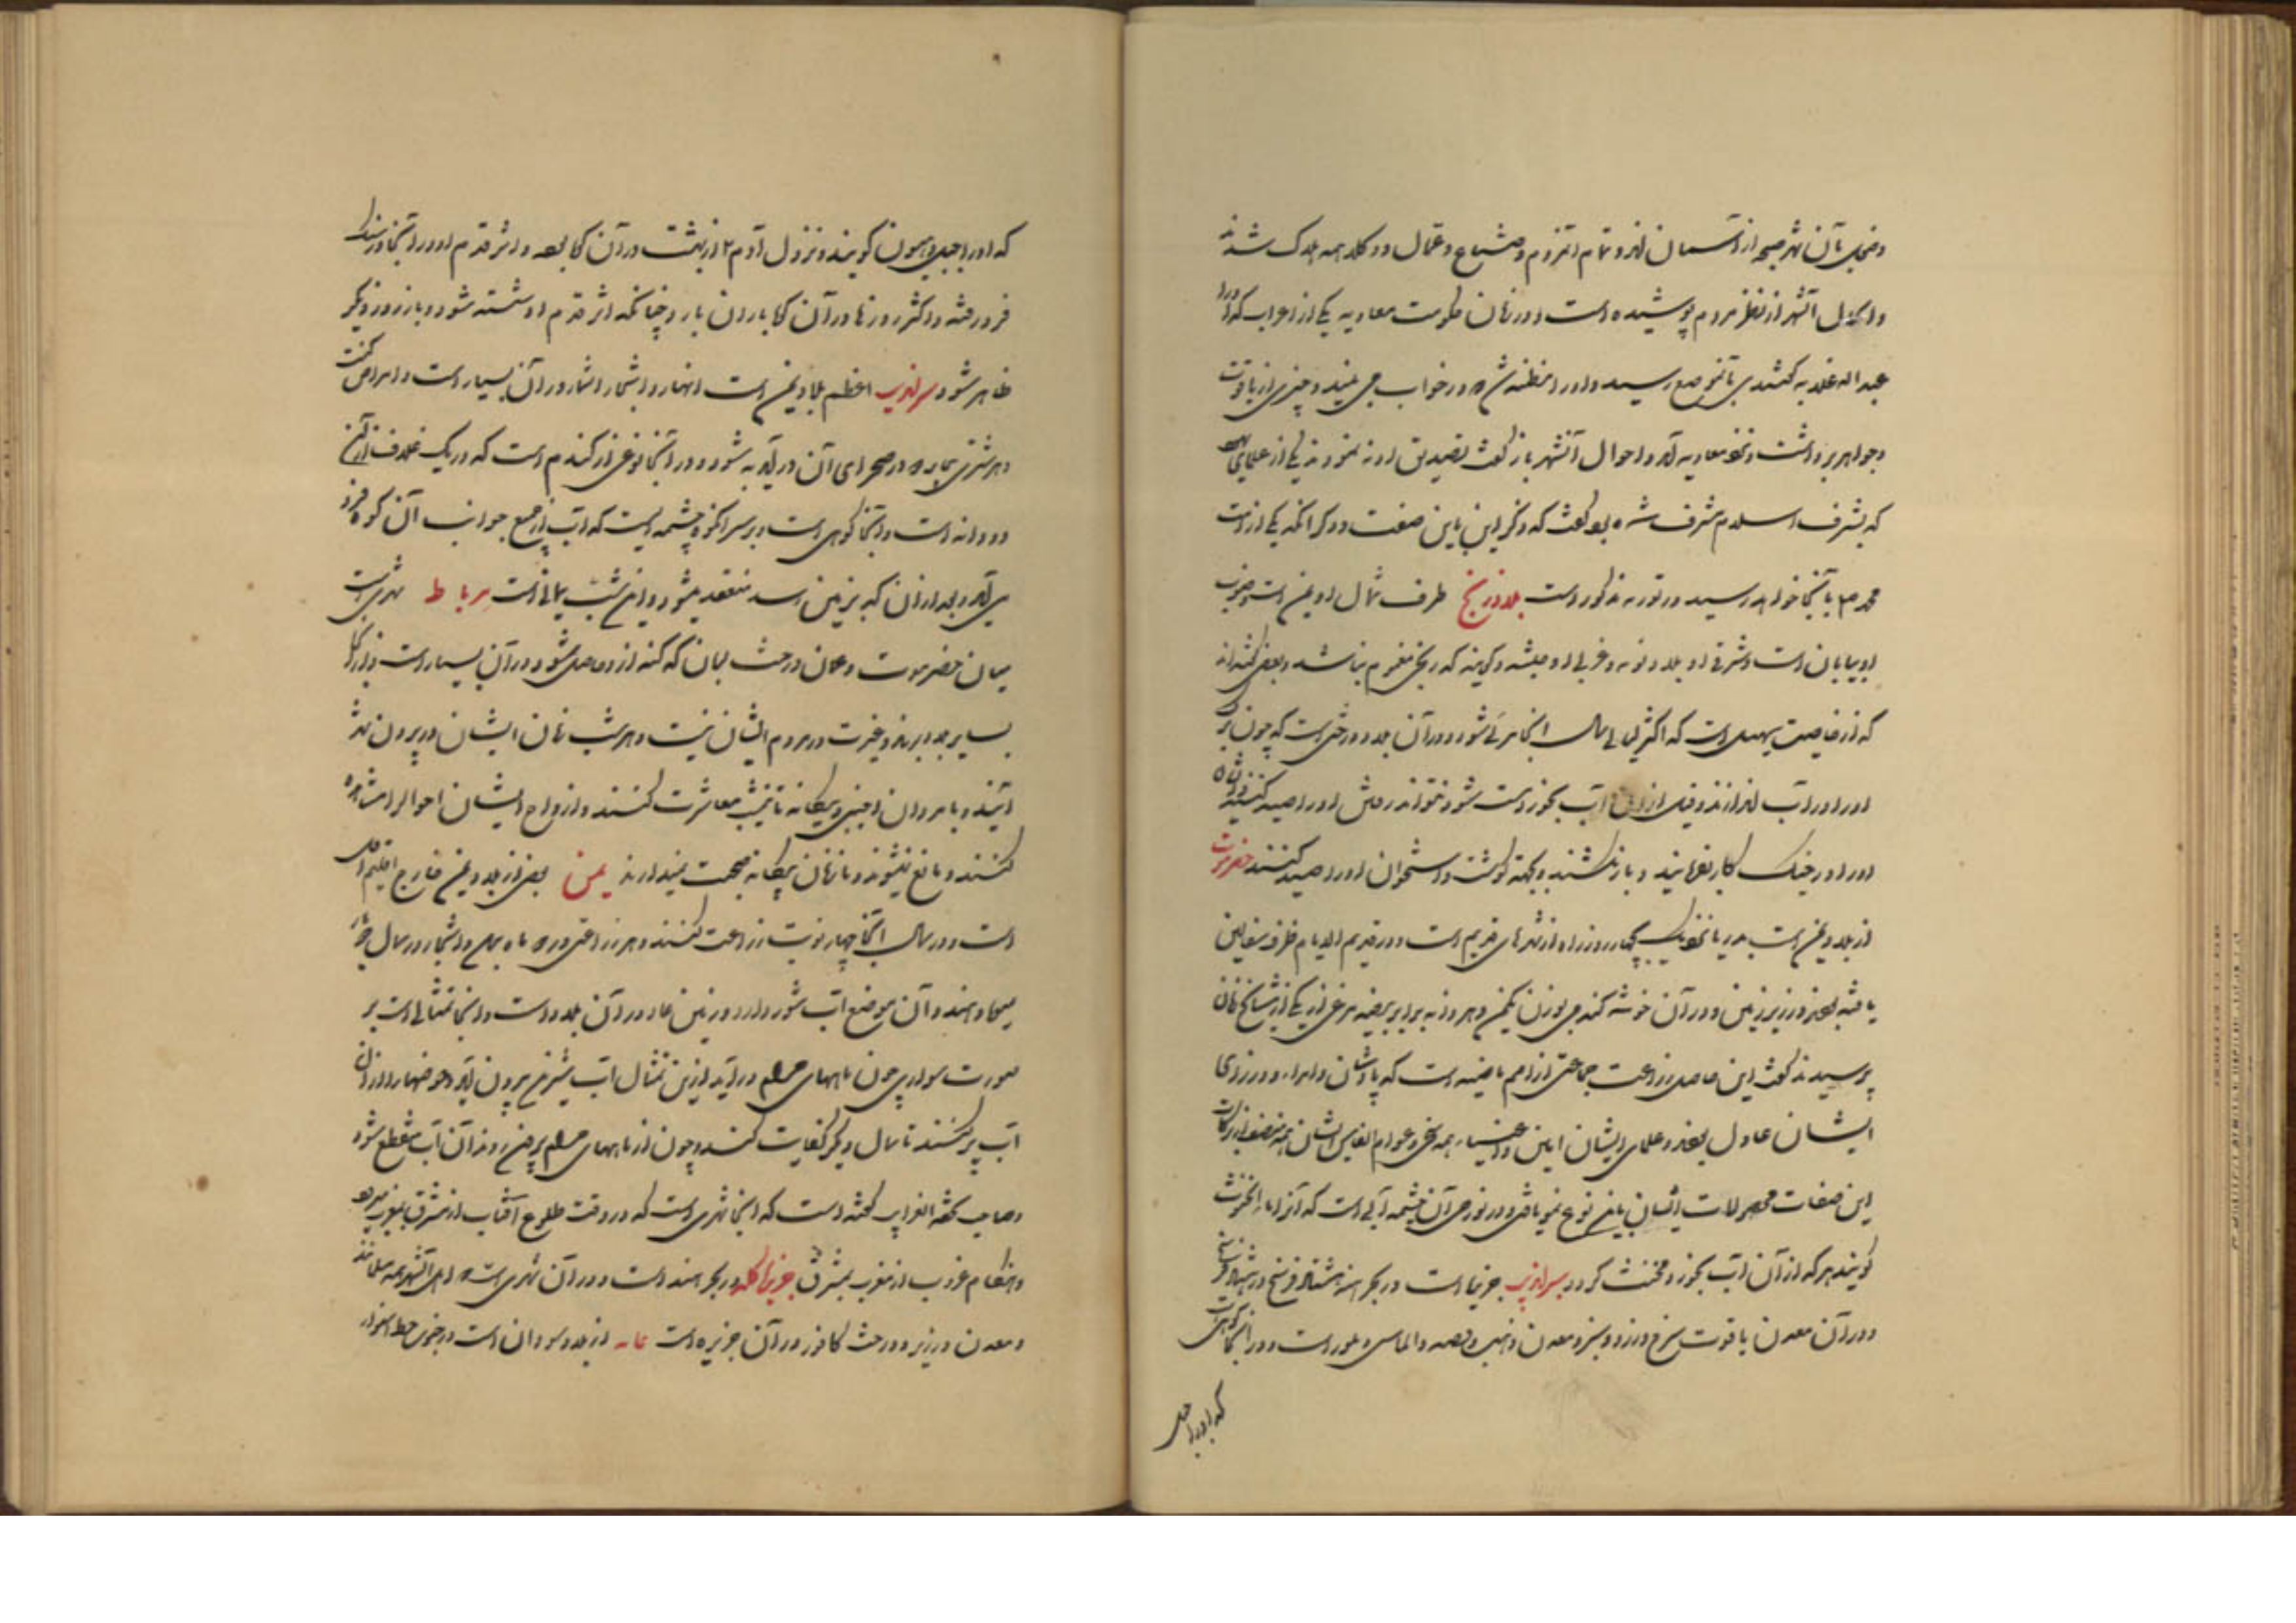 آن شهر صیحه از آسمان آمد و تمام آنمردم و صناع و عمال و وکلا همه هلاک شدند
آنشهر از نظر مردم پوشیده است و در زمان حکومت معاویه یکی از اعراب که او را
عبد اله قلابه گفتندی بآنموضع رسید و او را مظنه شد که در خواب می بیند و چیزی از یاقوت
و جواهر برداشت و نزد معاویه آمد و احوال آنشهر باز گفت تصدیق او ننمودند یکی از علمای
که بشرف اسلام مشرف شده بود گفت که ذکر این باین صفت و ذکر آنکه یکی از امت
محمد ص بآنجا خواهد رسید در توریه مذکور است بلاد زنج طرف شمال او یمن است و جنوب
او بیابان است و شرقی او بلاد نوبه و غربی او حبشه و گویند که زنجی مغموم نباشد و بعضی گفته‌اند
که از خاصیت سهیل است که اکثر لیالی سال آنجا مرئی شود و در آن بلاد درختی است که چون برگ
او را در آب اندازند و فیل از آن آب بخورد مست شود
او را در جنگ کار فرمایند و باز کشند و بجهة گوشت و استخوان او را صید کنند حضرموت
از بلاد یمن است بدریا نزدیک چهار روز راه از شهرهای قدیم است و در قدیم الایام ظرف سفالین
یافته بودند در زیر زمین و در آن خوشه گندمی بوزن یکمن و هر دانه برابر بیضه مرغی از یکی از مشایخ زمان
پرسیدند گفت این حاصل زراعت جماعتی از امم ماضیه است که پادشاهان و امراء و وزرای
ایشان عادل بودند و علمای ایشان امین و اغنیاء همه سخی و عوام الناس ایشان همه منصف از برکات
این صفات محصولات ایشان باین نوع نمو یافتی و در نواحی آن چشمه آبی است که آنرا ماء المخنث
گویند هر که از آن آب بخورد مخنث گردد سراندیب جزیره است در بحر هند هشتاد فرسخ در هشتاد فرسخ
و در آن معدن یاقوت سرخ و زرد و سبز و معدن ذهب و فضه و الماس و بلور است و در آنجا کوهی است
که او را جبل
که او را جبل راهون گویند و نزول آدم ۴ از بهشت در آن کوه بوده و اثر قدم او در آنجا در سنگ
فرو رفته و اکثر روزها در آن کوه باران بارد چنانکه اثر قدم او شسته شود و باز روز دیگر
ظاهر شود سراندیب اعظم بلاد یمن است انهار و اشجار و اثمار در آن بسیار است و امراض کمتر
و هر شتری بیمار که در صحرای آن در آید به شود و در آنجا نوعی از گندم است که در یک غلاف از آن
دو دانه است و آنجا کوهی است و بر سر آنکوه چشمه ایست که آب از جمیع جوانب آن کوه فرود
می آید و بعد از آن که بزمین رسد منعقد میشود و این شب یمانی است مرباط شهری است
میان حضرموت و عمان درخت لبان که کندر از او حاصل شود در آن بسیار است و از آنجا
بسایر بلاد برند و غیرت در مردم ایشان نیست و هر شب زنان ایشان در بیرون شهر
آیند و با مردان اجنبی و بیگانه تا نیمشب معاشرت کنند و ازواج ایشان احوال را مشاهده
کنند و مانع نیشوند و با زنان بیگانه صحبت میدارند یمن بعضی از بلاد یمن خارج اقلیم اول
است و در سال آنجا چهار نوبت زراعت کنند و هر زراعتی در دو ماه بعمل آید و اشجار در سال
میوه دهند و آن موضع آب شور دارد و زمین عاد در آن بلاد است و آنجا تمثالی است بر
صورت سواری چون ماههای حرام در آید از این تمثال آب شیرین بیرون آید و حوضها را از آن
آب پر کنند تا سال دیگر کفایت کند و چون از ماههای حرام بیرون روند آن آب منقطع شود
و صاحب تحفة الغرایب گفته است که آنجا شهری است که در وقت طلوع آفتاب از مشرق بمغرب میرود
و هنگام غروب از مغرب بمشرق جزیره کله در بحر هند است و در آن شهری است که اهل آنشهر همه مسلمانند
و معدن ارزیز و درخت کافور در آن جزیره است غانه از بلاد سودان است در جنوب خط استوا